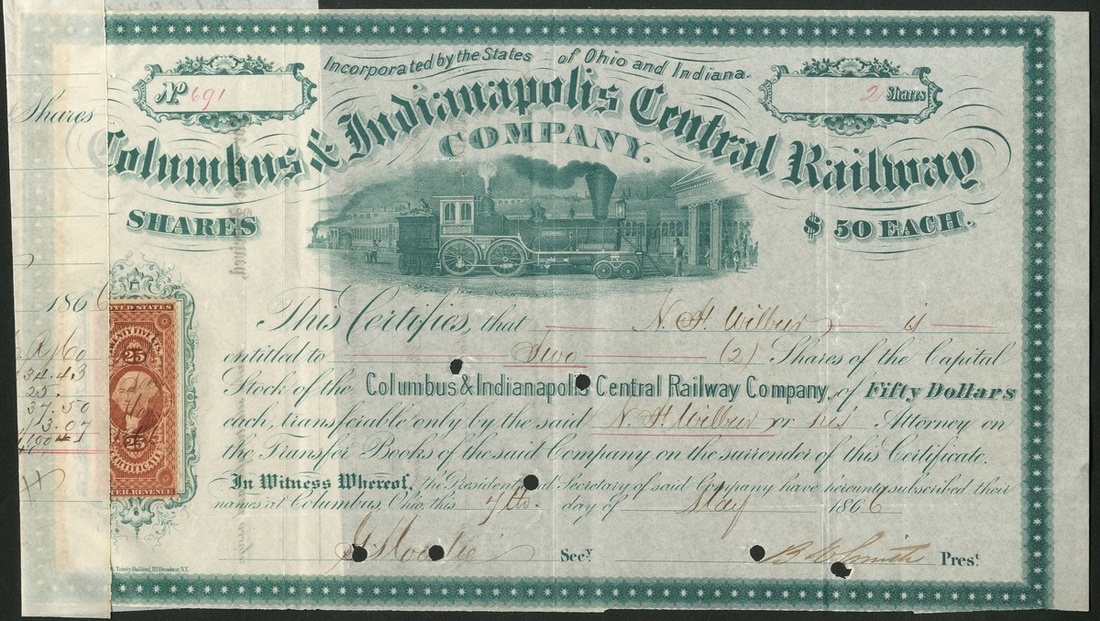 Incorporated by the States of Ohio and Indiana.
No 691
2 Shares
Shares
Columbus & Indianapolis Central Railway
COMPANY.
SHARES
$ 50 EACH.
186
This Certifies, that N. H. Wilbur is
entitled to Two (2) Shares of the Capital
Stock of the Columbus & Indianapolis Central Railway Company, of Fifty Dollars
each, transferable only by the said N. H. Wilbur or his Attorney on
the Transfer Books of the said Company on the surrender of this Certificate.
In Witness Whereof, the President and Secretary of said Company have hereunto subscribed their
names at Columbus Ohio, this 7th. day of May 1866
Secy
B. E. Smith Prest
UNITED STATES
TWENTY FIVE CTS.
25
25
CERTIFICATE
INTER. REVENUE
34.43
25.
37.50
3.07
Trinity Building, 111 Broadway N.Y.